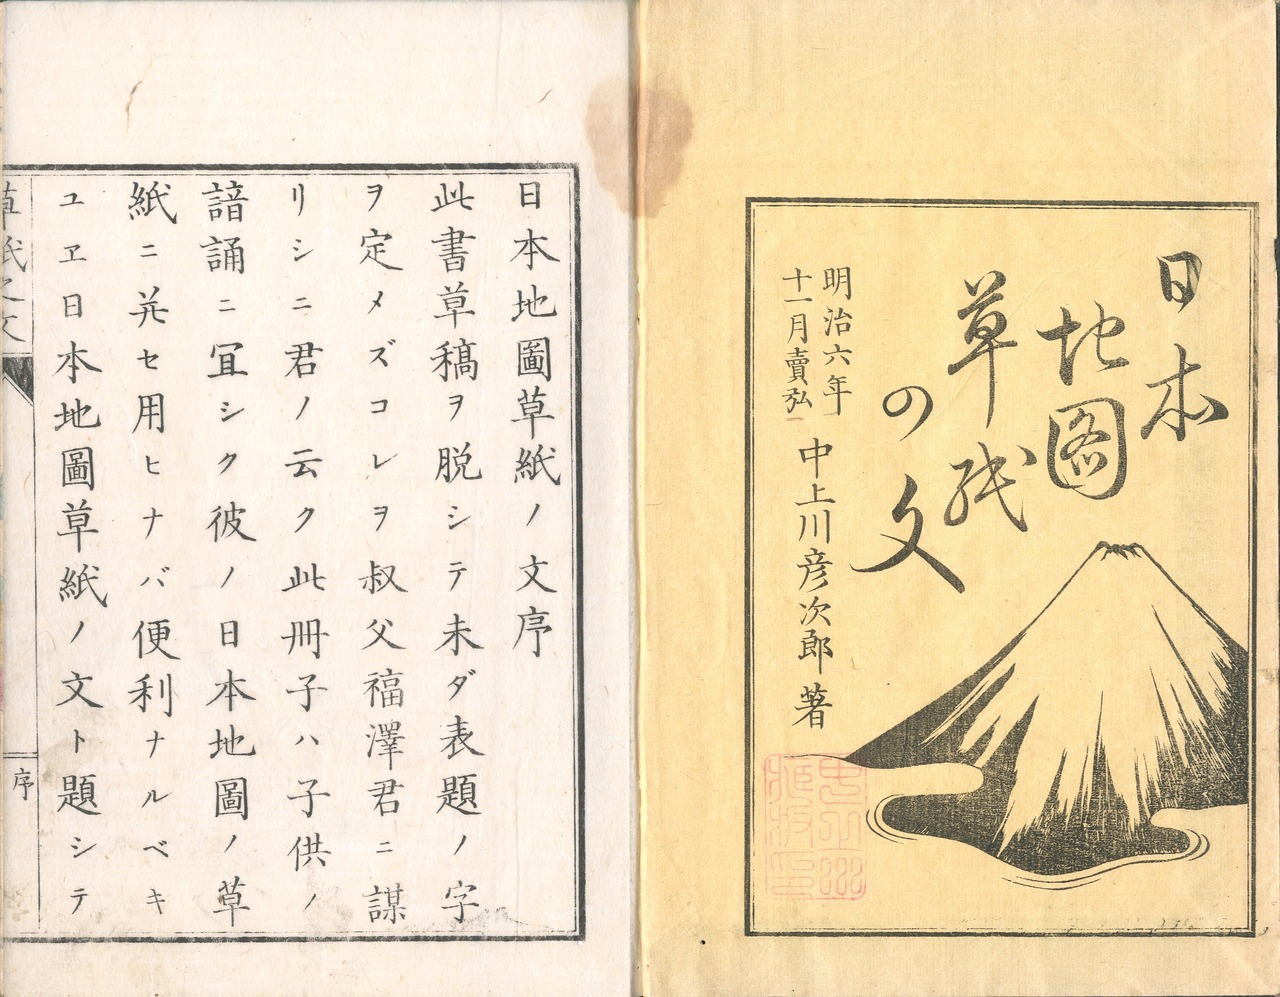 日本
地圖
草紙
の
文
明治六年
十一月賣弘
中上川彦次郎著
日本地圖草紙ノ文序
此書草稿ヲ脱シテ未ダ表題ノ字
ヲ定メズコレヲ叔父福澤君ニ謀
リシニ君ノ云ク此冊子ハ子供ノ
諳誦ニ冝シク彼ノ日本地圖ノ草
紙ニ并セ用ヒナバ便利ナルベキ
ユヱ日本地圖草紙ノ文ト題シテ
草紙之文
序